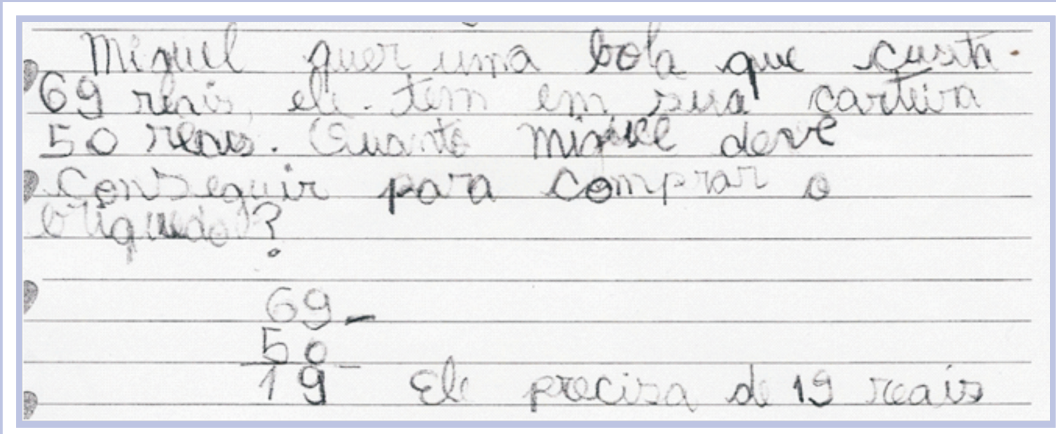 Miguel quer uma bola que custa
69 reais, ele tem em sua carteira
50 reais. Quanto Miguel deve
conseguir para comprar o
briquedo?
69 -
50
19 Ele precisa de 19 reais